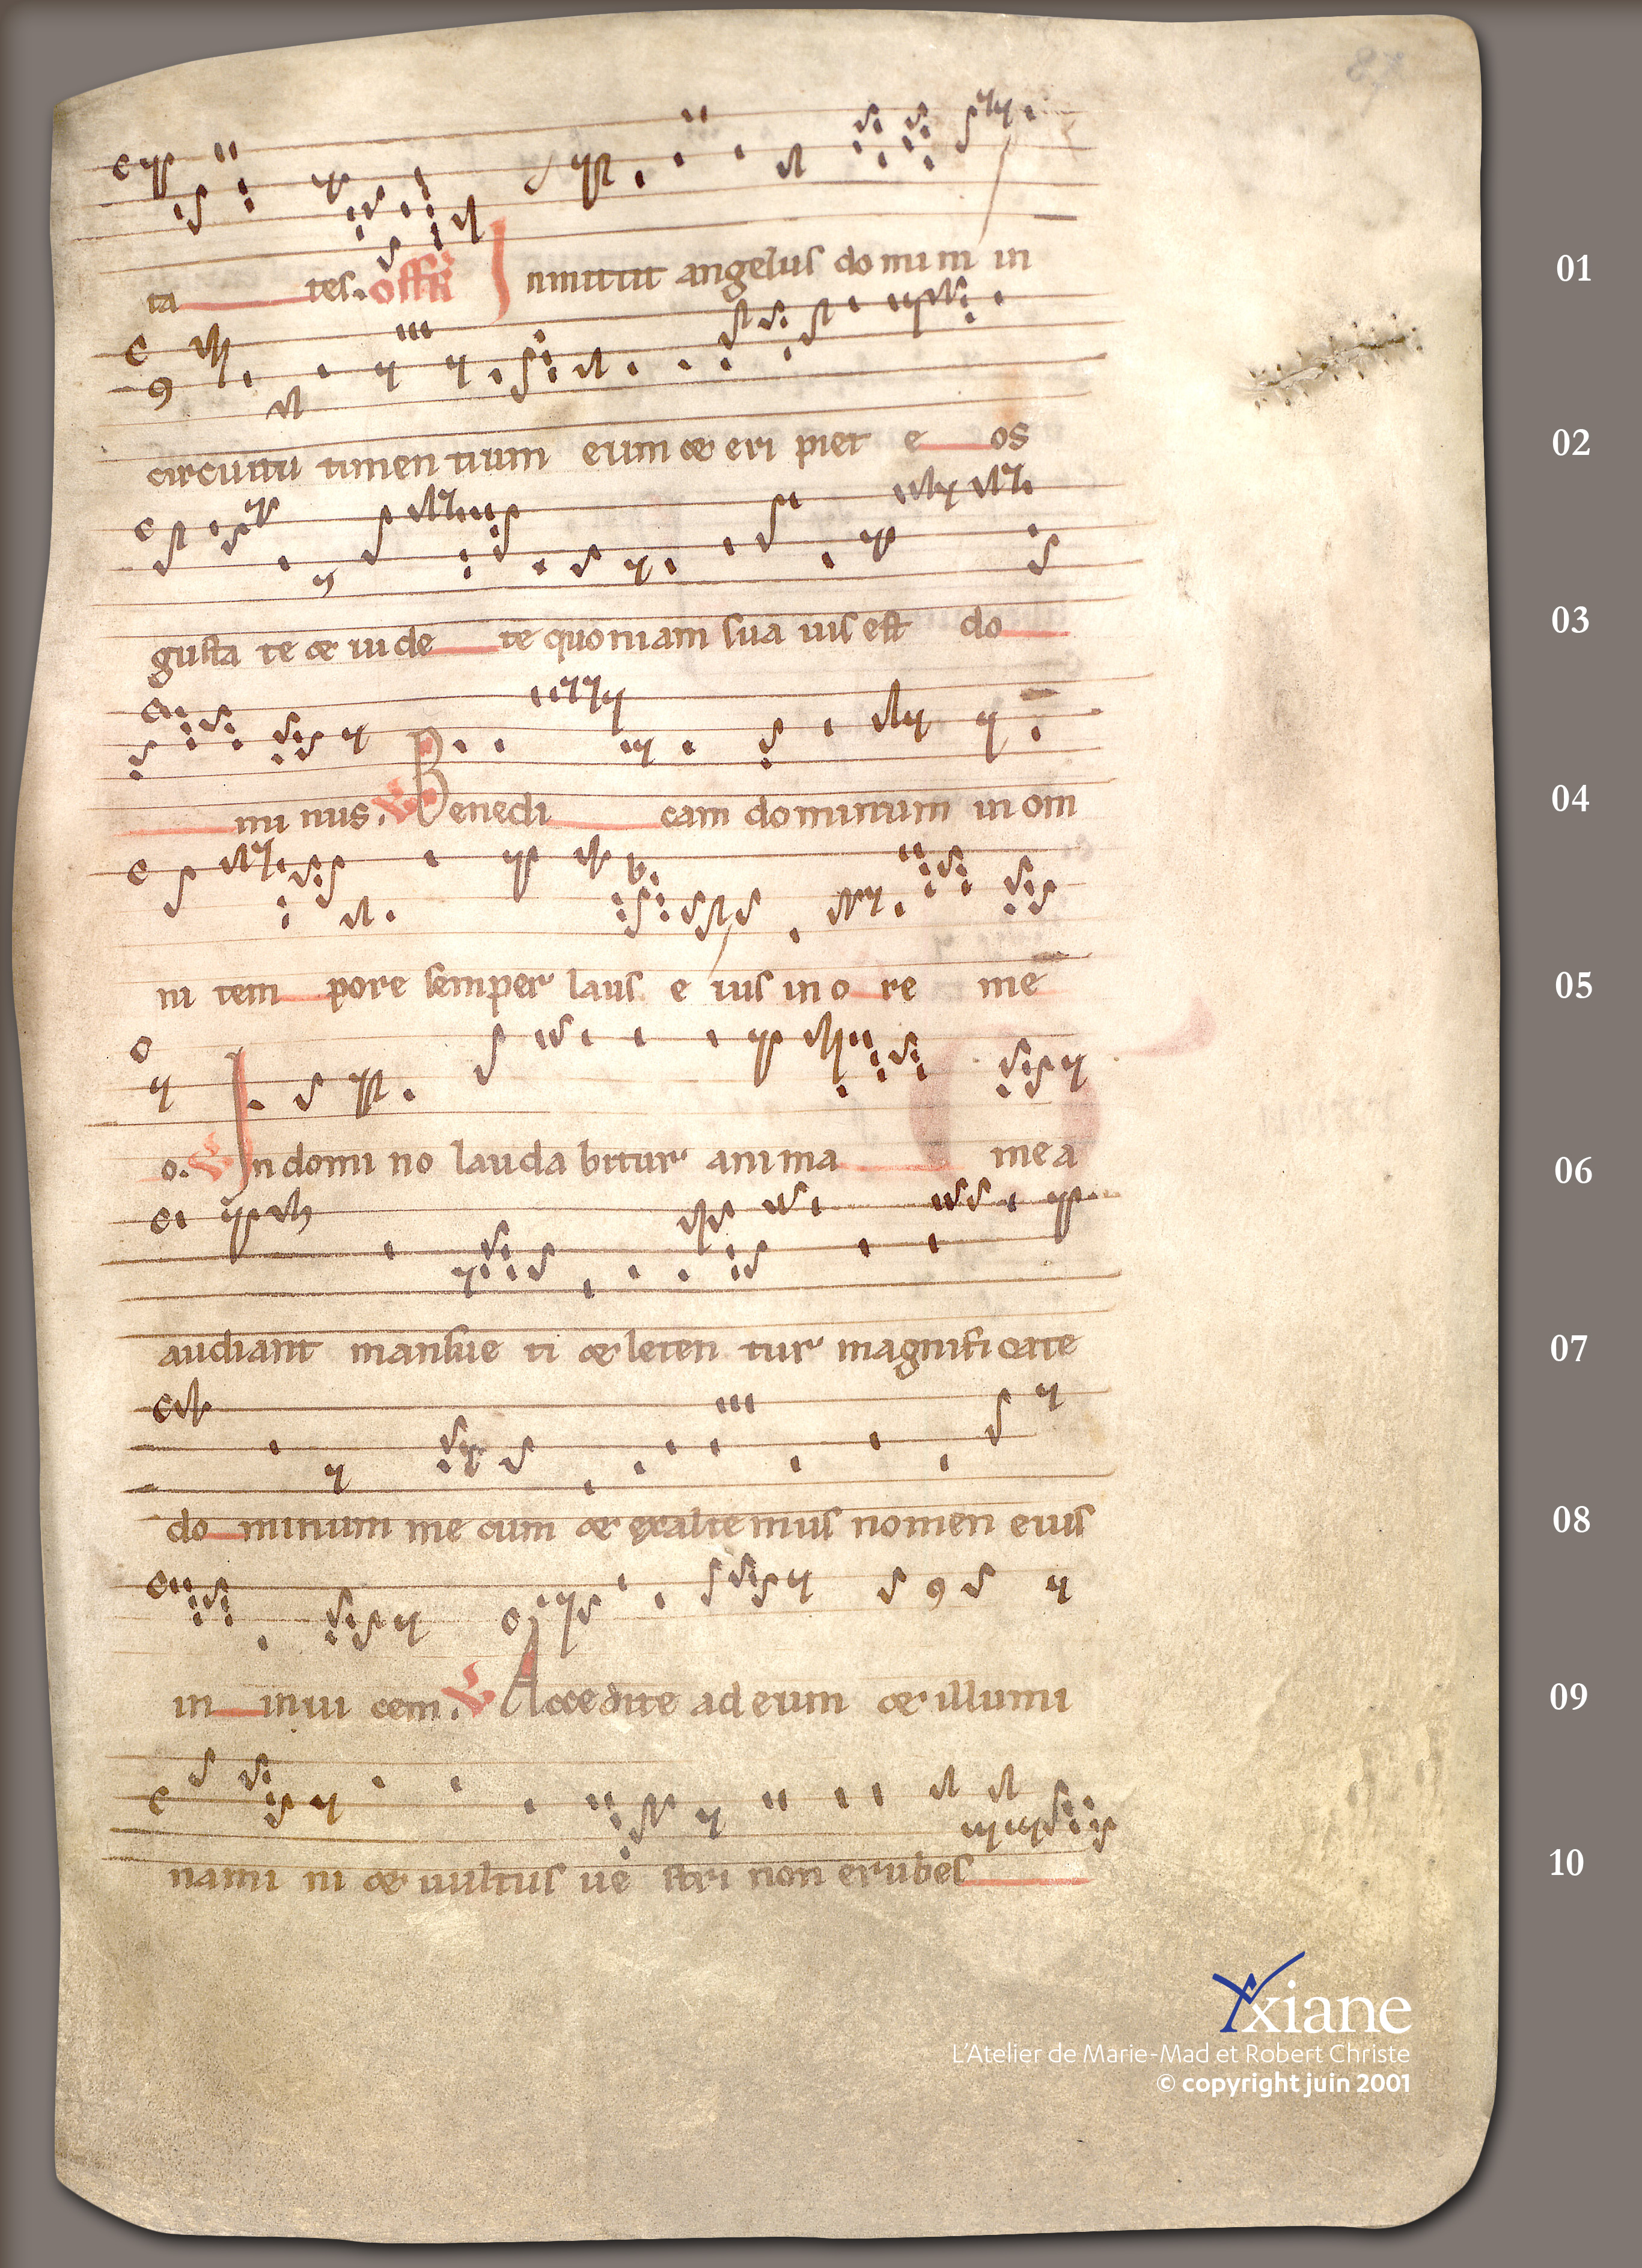 87
ta tes. offr Inmittit angelus dominum in 01
circuitu timentium eum et eripiet e os 02
gustate et uidete quoniam suauis est do 03
minus. V Benedi cam dominum in om 04
ni tempore semper laus eius in ore me 05
o. V In domino laudabitur anima mea 06
audiant mansueti et letentur magnificate 07
dominum mecum et exaltemus nomen eius 08
in inuicem. V Accedite ad eum et illumi 09
namini et uultus uestri non erubes 10
Yxiane
L'Atelier de Marie-Mad et Robert Christe
© copyright juin 2001